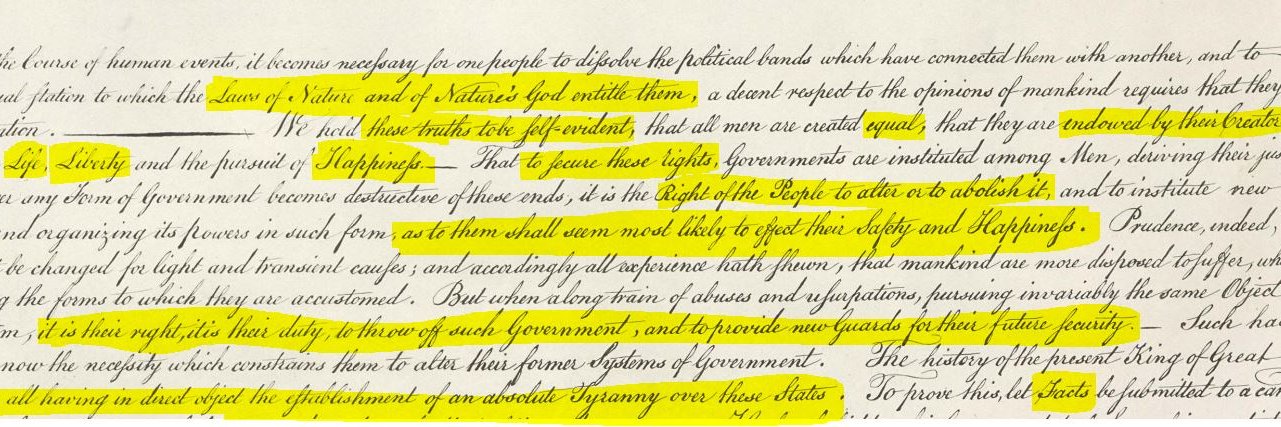 he Course of human events, it becomes necessary for one people to dissolve the political bands which have connected them with another, and to
ual station to which the Laws of Nature and of Nature's God entitle them, a decent respect to the opinions of mankind requires that they
ation. — We hold these truths to be self-evident, that all men are created equal, that they are endowed by their Creator
Life, Liberty and the pursuit of Happiness. — That to secure these rights, Governments are instituted among Men, deriving their jus
er any Form of Government becomes destructive of these ends, it is the Right of the People to alter or to abolish it, and to institute new
nd organizing its powers in such form, as to them shall seem most likely to effect their Safety and Happiness. Prudence, indeed,
be changed for light and transient causes; and accordingly all experience hath shewn, that mankind are more disposed to suffer, wh
g the forms to which they are accustomed. But when a long train of abuses and usurpations, pursuing invariably the same Object
m, it is their right, it is their duty, to throw off such Government, and to provide new Guards for their future security. — Such ha
now the necessity which constrains them to alter their former Systems of Government. The history of the present King of Great
all having in direct object the establishment of an absolute Tyranny over these States. To prove this, let Facts be submitted to a can